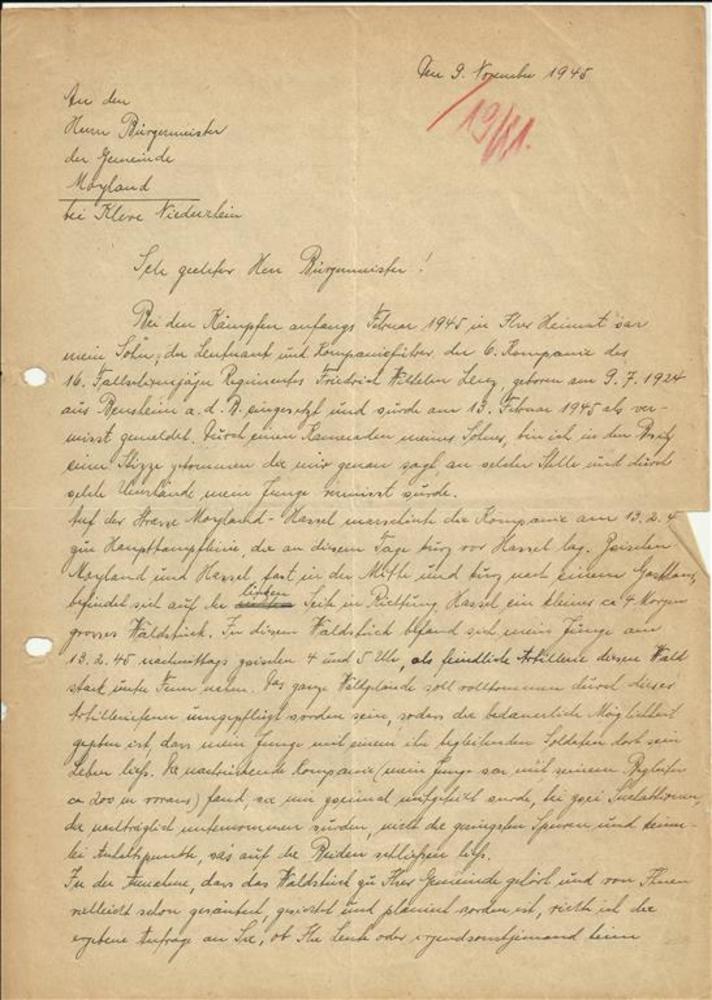 Den 9. November 1945
19/11.
An den
Herrn Bürgermeister
der Gemeinde
Moyland
bei Kleve Niederrhein
Sehr geehrter Herr Bürgermeister!
Bei den Kämpfen anfangs Februar 1945 in Ihrer Heimat war
mein Sohn, der Leutnant und Kompanieführer der 6. Kompanie des
16. Fallschirmjäger Regimentes Friedrich Wilhelm Lenz, geboren am 9.7.1924
aus Bensheim a. d. B. eingesetzt und wurde am 13. Februar 1945 als ver-
misst gemeldet. Durch einen Kameraden meines Sohnes, bin ich in den Besitz
einer Skizze gekommen die mir genau sagt, an welcher Stelle und durch
welche Umstände mein Junge vermisst wurde.
Auf der Strasse Moyland - Hassel marschierte die Kompanie am 13.2.4
zur Hauptkampflinie, die an diesem Tage kurz vor Hassel lag. Zwischen
Moyland und Hassel, fast in der Mitte und kurz nach einem Gasthaus,
befindet sich auf der linken Seite in Richtung Hassel ein kleines ca 4 Morgen
grosses Waldstück. In diesem Waldstück befand sich mein Junge am
13.2.45 nachmittags zwischen 4 und 5 Uhr, als feindliche Artillerie diesen Wald
stark unter Feuer nahm. Das ganze Waldgelände soll vollkommen durch dieses
Artilleriefeuer umgepflügt worden sein, sodass die bedauerliche Möglichkeit
gegeben ist, dass mein Junge mit einem ihn begleitenden Soldaten dort sein
Leben liess. Die nachrückende Kompanie (mein Junge war mit seinem Begleiter
ca 200 m voraus) fand, wie mir zweimal mitgeteilt wurde, bei zwei Suchaktionen,
die nachträglich unternommen wurden, nicht die geringsten Spuren und keiner-
lei Anhaltspunkte, was auf die Beiden schließen liess.
In der Annahme, dass das Waldstück zu Ihrer Gemeinde gehört und von Ihnen
vielleicht schon gesäubert, gesichtet und planiert worden ist, richte ich die
ergebene Anfrage an Sie, ob Ihre Leute oder irgendsonstjemand beim